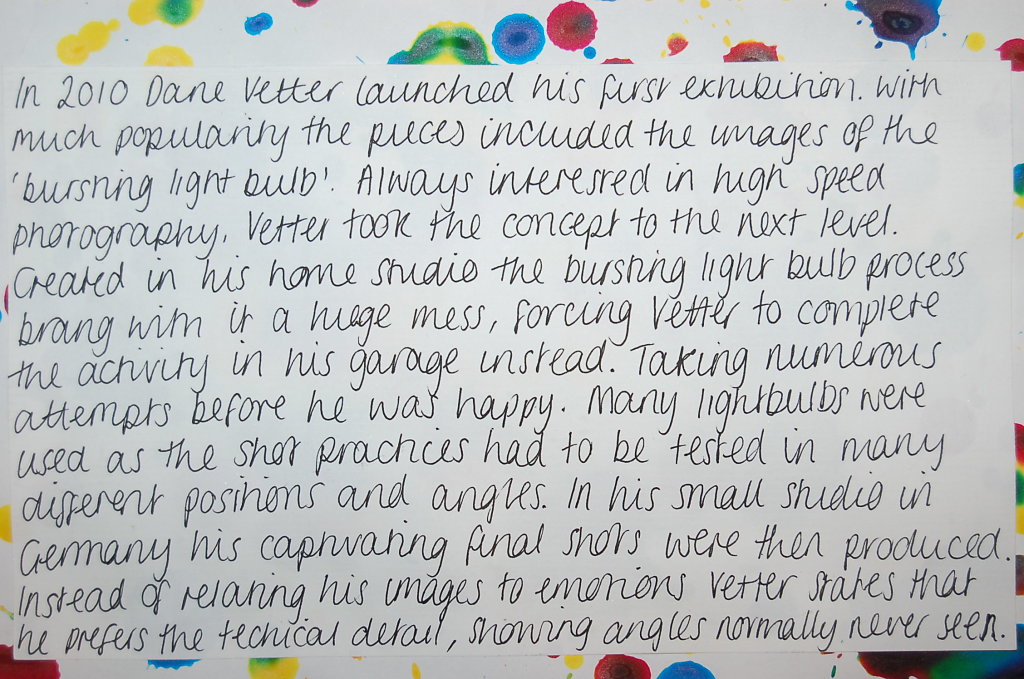 In 2010 Dane Vetter launched his first exhibition. With
much popularity the pieces included the images of the
'bursting light bulb'. Always interested in high speed
photography, Vetter took the concept to the next level.
Created in his home studio the bursting light bulb process
brang with it a huge mess, forcing Vetter to complete
the activity in his garage instead. Taking numerous
attempts before he was happy. Many lightbulbs were
used as the shot practices had to be tested in many
different positions and angles. In his small studio in
Germany his captivating final shots were then produced.
Instead of relating his images to emotions Vetter states that
he prefers the techical detail, showing angles normally never seen.